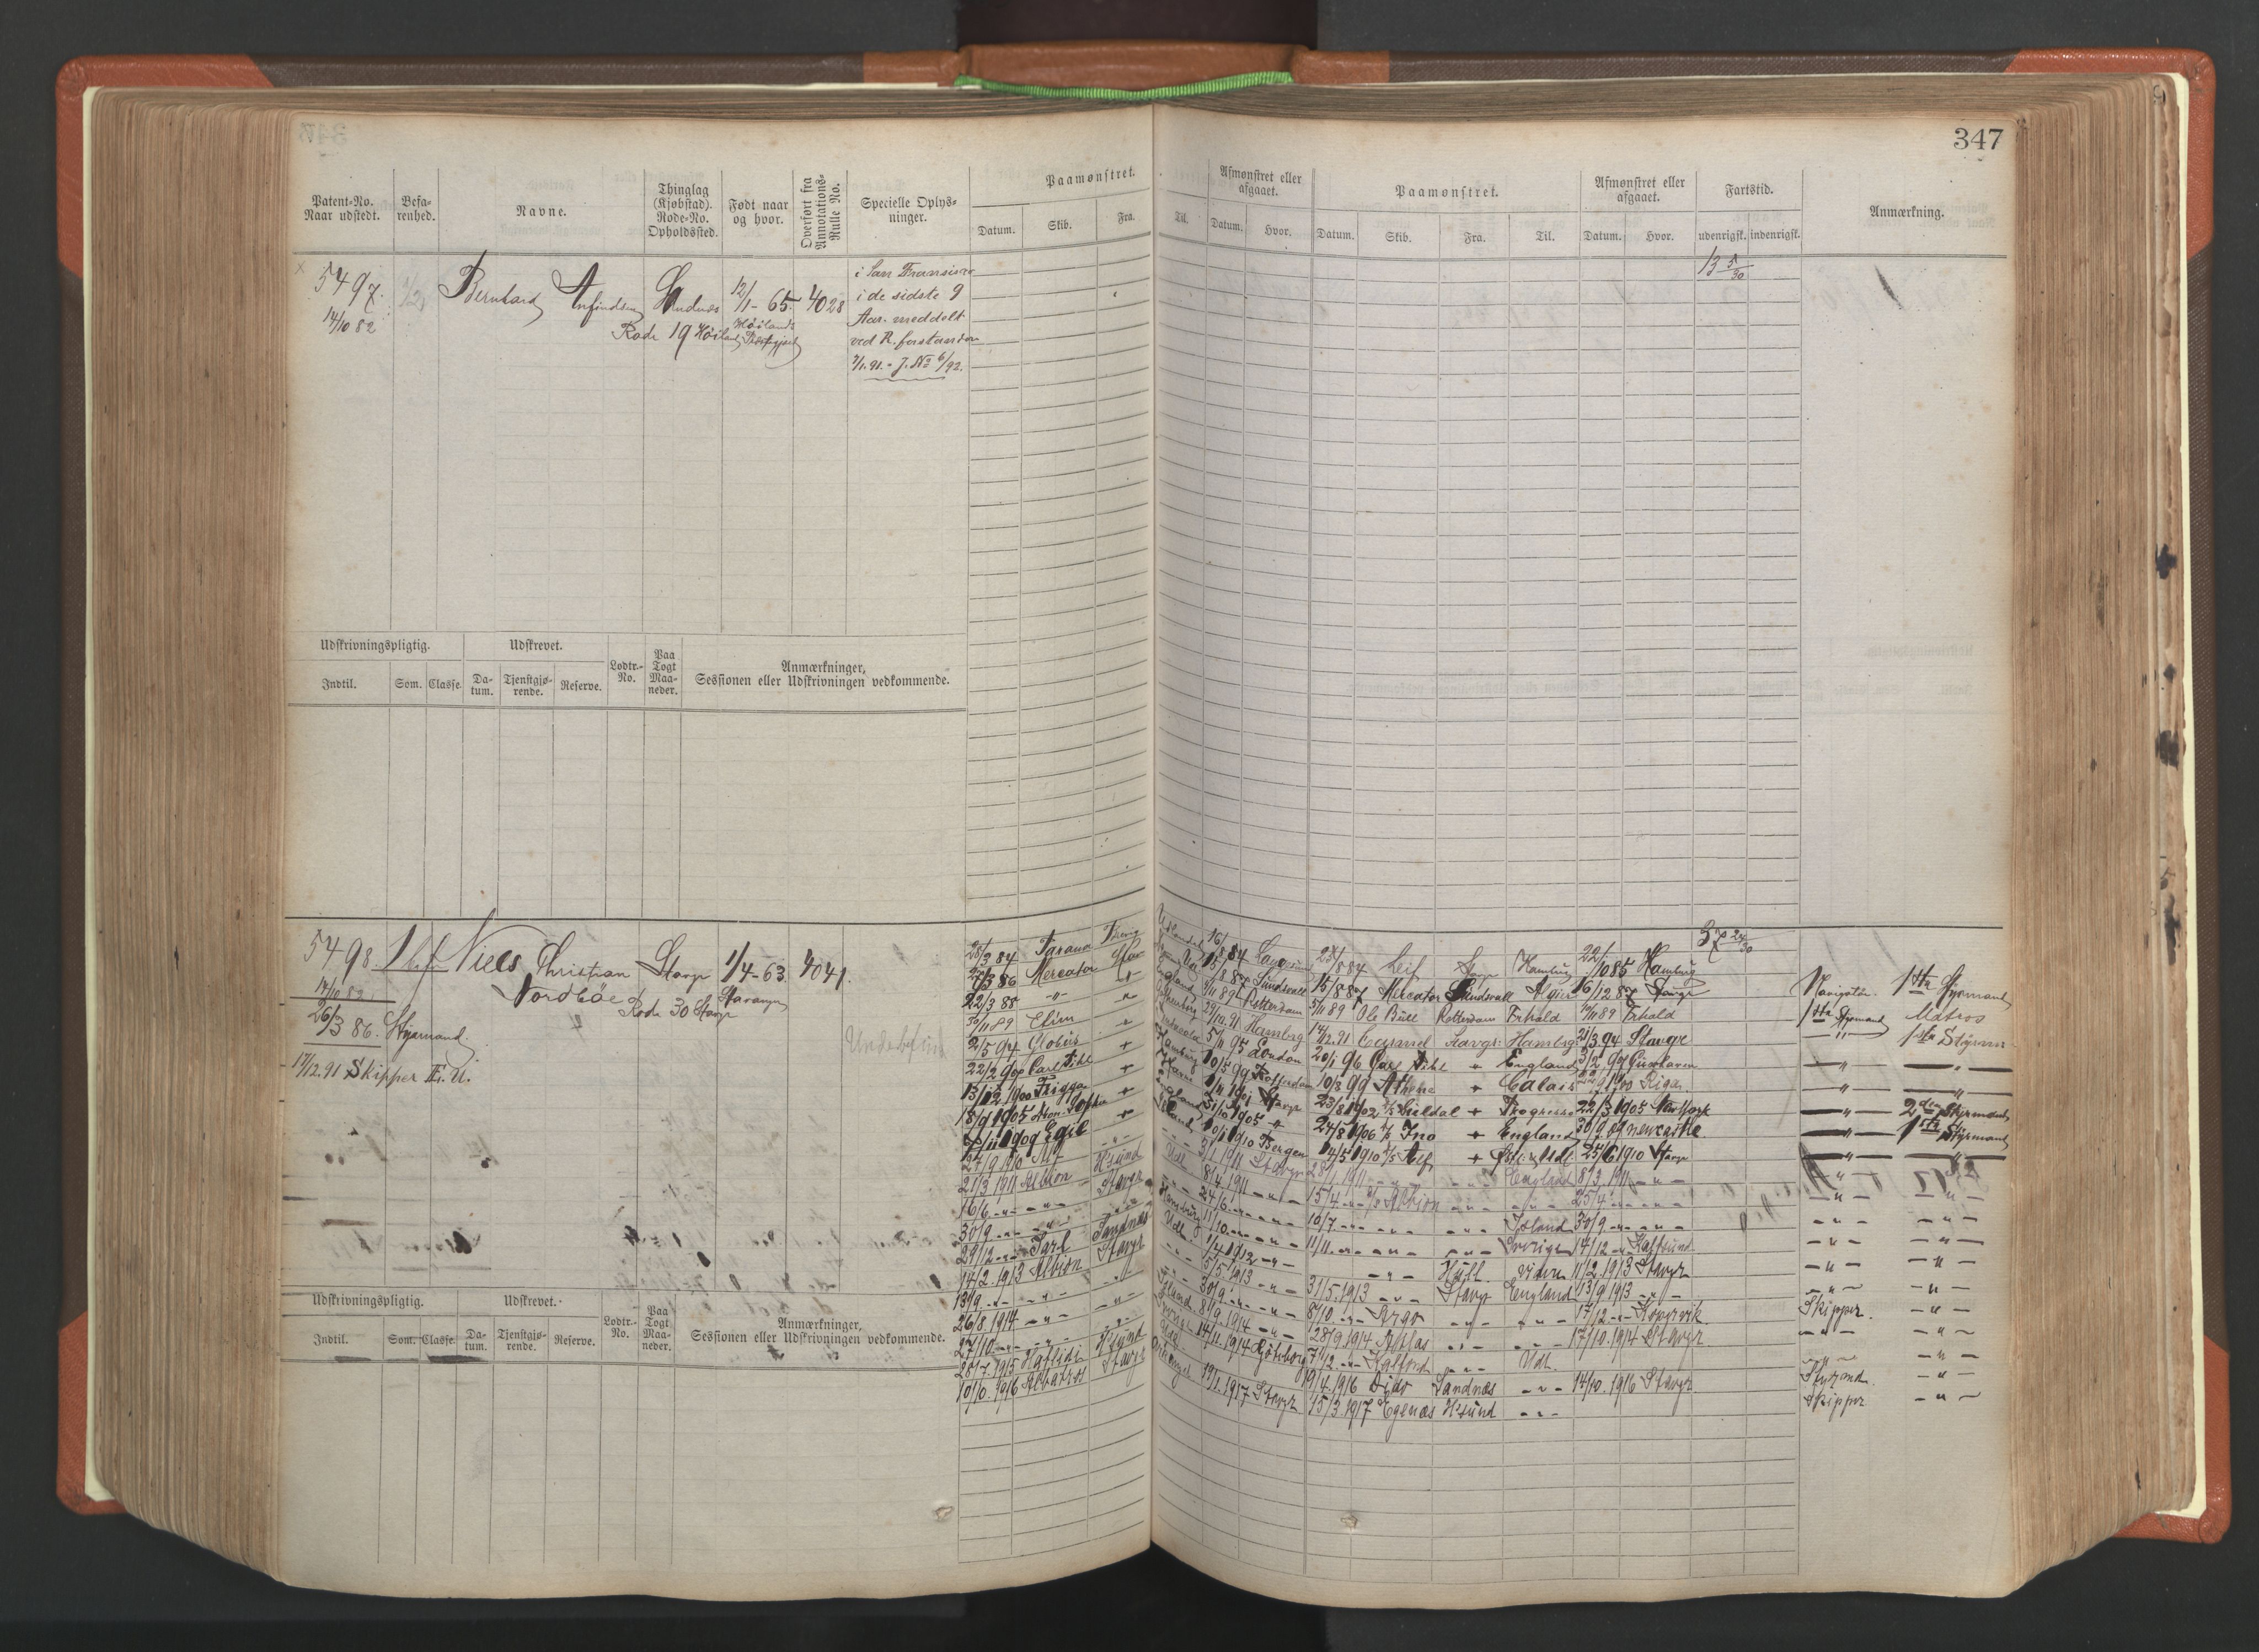 347
Patent-No. Naar udstedt.
Befarenhed.
Navne.
Thinglag (Kjøbstad). Rode-No. Opholdssted.
Født naar og hvor.
Overført fra Annotations-Rulle No.
Specielle Oplysninger.
Paamønstret.
Datum. Skib. Fra. Til.
Afmønstret eller afgaaet.
Datum. Hvor.
Paamønstret.
Datum. Skib. Fra. Til.
Afmønstret eller afgaaet.
Datum. Hvor.
Fartstid.
udenrigsk. indenrigsk.
Anmærkning.
5497. 1/2 Bernhard Anfindsen Sandnes 12/1-65. 4028
14/10 82 Rode 19 Höiland Höilands Præstegjæld
i San Fransisco
i de sidste 9
Aar. meddelt
ved R. forstander
7/1.91. - J. No 6/92.
13 5/30
Udskrivningspligtig. Udskrevet. Lodtr.-No. Paa Togt Maaneder. Anmærkninger, Sessionen eller Udskrivningen vedkommende.
Indtil. Som. Classe. Datum. Tjenstgjørende. Reserve.
5498. Niels Christian Stavgr 1/4-63. 4041.
14/10 82. Nordböe Rode 30 Stavgr Stavanger
26/3 86. Styrmand.
17/12.91 Skipper E. U.
Ubefaren
37 24/30
28/3 84 Parana
27/3 86 Mercator
22/3 88 -"-
30/11 89 Ellim
2/5 94 Globus
22/2 99 Carl Pihl +
13/12 1900 Frigga +
18/9 1905
7/11 1909 Egil +
27/9 1910 Alf
21/3 1911 Albion
16/6 -"- -"- Stavgr
30/9 -"- -"-
29/12 -"- Jarl Sandnæs
14/2 1913 Albion Stavgr
13/9 -"- -"-
26/8 1914 -"-
27/10 -"- -"-
28/7. 1915 Haflidi H'sund
10/10. 1916 Albatros Stavgr
16/8 84
15/8 87 Sundsvall
5/11 89 Rotterdam
29/10.91 Hamburg
5/11 95 London
10/5 99 Rotterdam
1/4 1901 Stavgr
31/10 1905 -"-
10/1 1910 Bergen
3/1 1911 Stavgr
8/4 1911 -"-
24/6 -"- -"-
11/10 -"- -"-
1/4 1912 -"-
5/5. 1913 -"-
30/9 -"- -"-
8/9. 1914 -"-
14/11. 1914 Göteborg
19/1. 1917 Stavgr
23/8 84 Leif Stavgr Hamburg 22/10 85 Hamburg
15/8 87 Mercator Sundsvall Algier 16/12 87 Stavgr
5/11 89 Ole Bull Rotterdam Frhald 14/11 89 Frhald
14/12.91 Stavgr. Hamburg 21/3 94 Stavgr
20/1 96 Carl Pihl + England 3/2 99 Cuxhaven
10/8 99 Athene + Calais 1900 Riga
23/8 1902 + Progresso 22/3 1905 New York
24/8 1906 Ino + England 30/9 09 Newcastle
14/5 1910 Alf + 25/6 1910 Stavgr
28/1 1911 -"- -"- England 8/3. 1911 -"-
15/4 -"- Albion -"- -"- 25/4 -"- -"-
10/7 -"- -"- -"- Island 30/9 -"- -"-
11/11 -"- -"- -"- Sverige 14/12 -"- Kalfsund
-"- Hull viden 11/2. 1913 Stavgr
31/5. 1913 -"- Stavgr England 13/9 1913 -"-
8/10 -"- Argo -"- -"- 17/12 -"- Kopervik
28/9. 1914 Atlas -"- -"- 17/10. 1914 Stavgr
7/12 -"- -"- Udl.
19/4. 1916 Dido Sandnæs -"- 14/10. 1916 Stavgr
15/3. 1917 Egenæs H'sund -"-
Navigatör. 1ste Styrmand
1ste Styrmand Matros
-"- 1ste Styrm
-"- -"-
-"- -"-
-"- 2den Styrmand
-"- 1ste Styrmand
-"- -"-
-"- -"-
-"- -"-
-"- -"-
-"- -"-
-"- -"-
Skipper. -"-
-"- -"-
-"- -"-
Styrmd. -"-
Skipper -"-
Udskrivningspligtig. Udskrevet. Lodtr.-No. Paa Togt Maaneder. Anmærkninger, Sessionen eller Udskrivningen vedkommende.
Indtil. Som. Classe. Datum. Tjenstgjørende. Reserve.